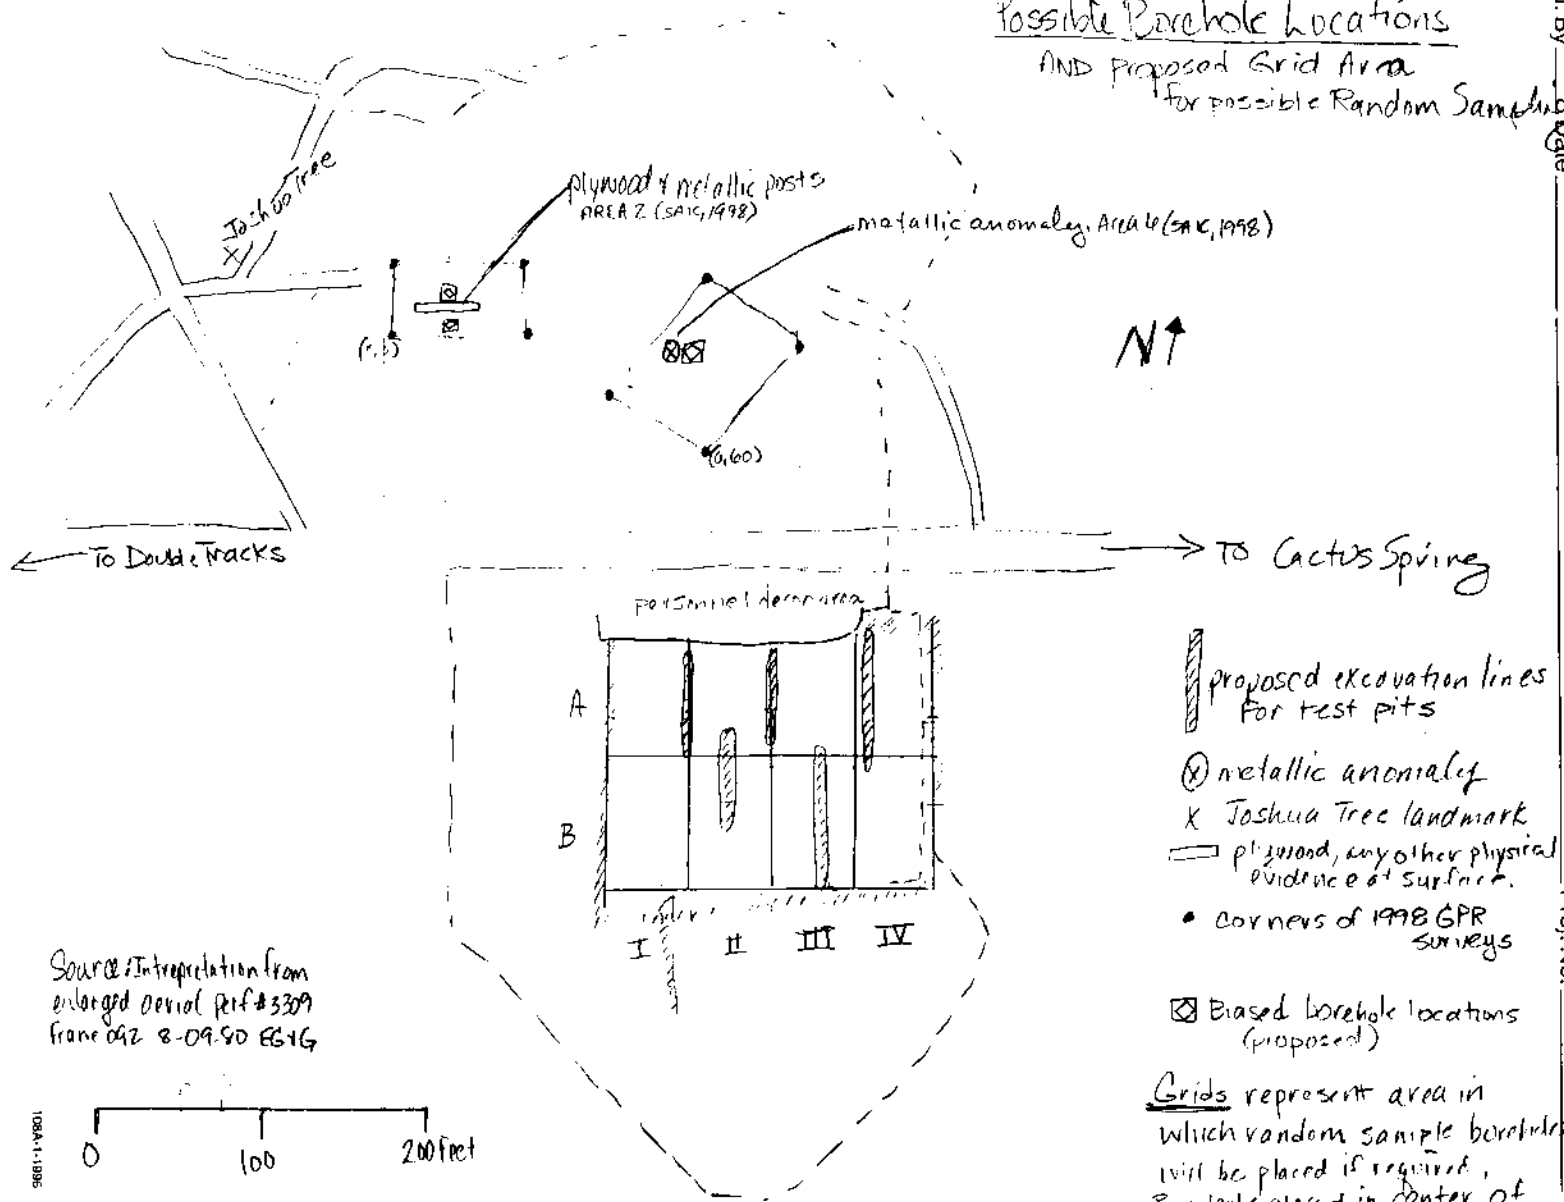 Possible Borehole Locations
AND Proposed Grid Area
for possible Random Sampling
By
Date
Joshua Tree
X
plywood & metallic posts
AREA 2 (SAIC, 1998)
metallic anomaly. Area 6 (SAIC, 1998)
N
(0,60)
To Double Tracks
TO Cactus Spring
personnel decon area
A
B
I II III IV
proposed excavation lines
for test pits
metallic anomaly
X Joshua Tree landmark
plywood, any other physical
evidence at surface.
corners of 1998 GPR
surveys
Biased borehole locations
(proposed)
Grids represent area in
which random sample borehole
will be placed if required,
placed in center of
Source: Intrepretation from
enlarged aerial Perf #3309
frame 092 8-09-80 EG&G
0 100 200 feet
108A-1-1996